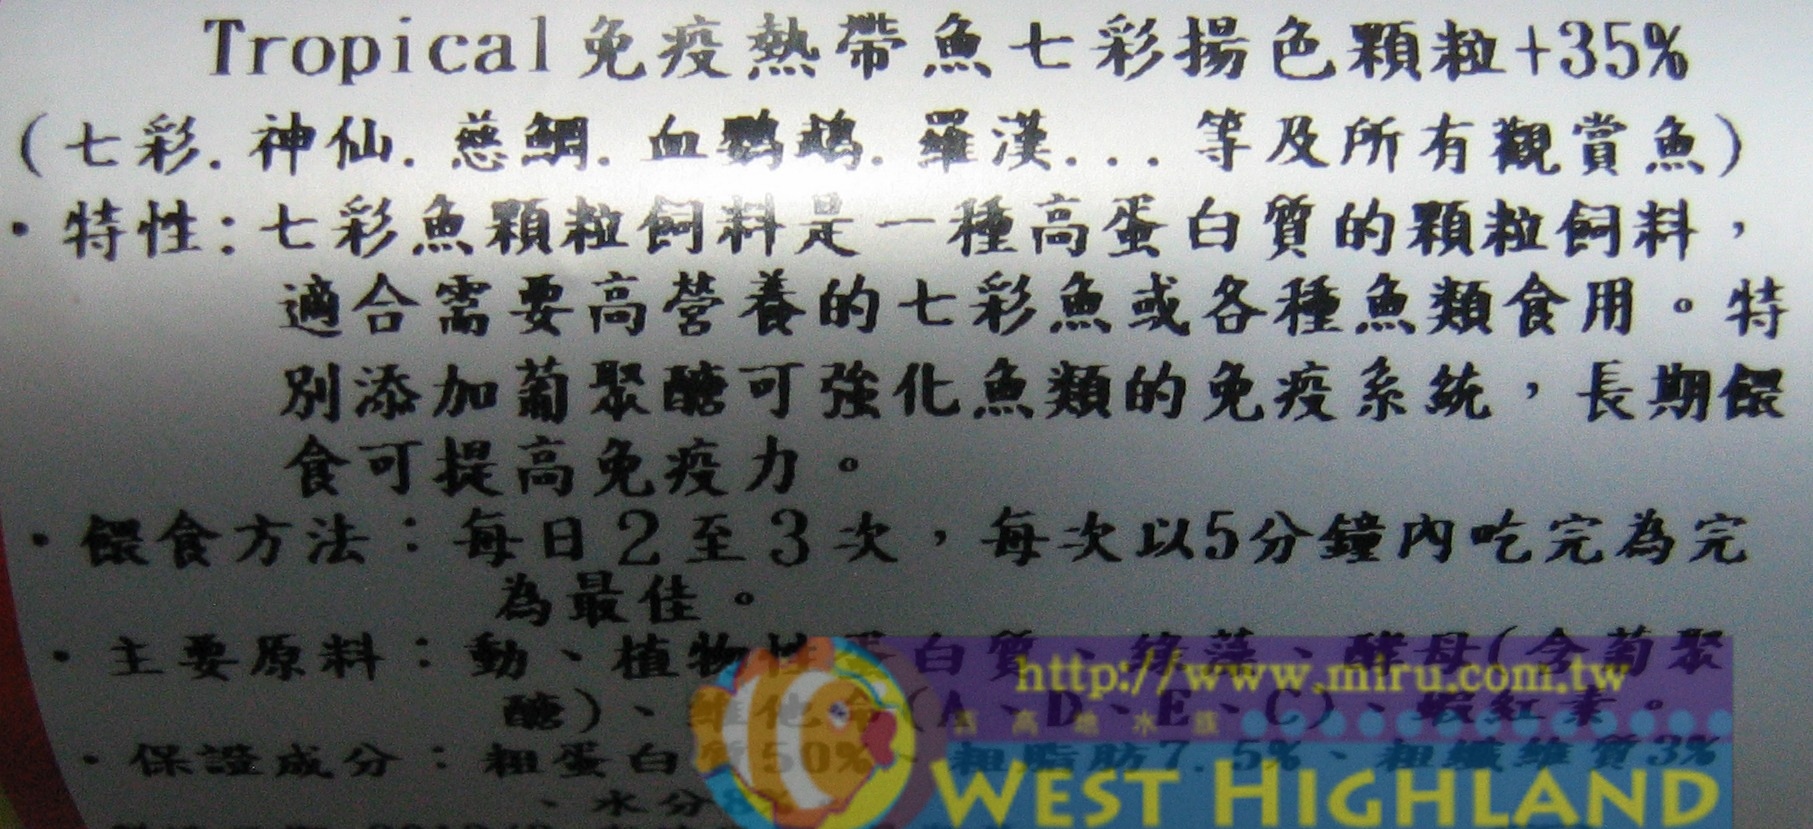 Tropical免疫熱帶魚七彩揚色顆粒+35%
(七彩.神仙.慈鯛.血鸚鵡.羅漢...等及所有觀賞魚)
·特性:七彩魚顆粒飼料是一種高蛋白質的顆粒飼料，
適合需要高營養的七彩魚或各種魚類食用。特
別添加葡聚醣可強化魚類的免疫系統，長期餵
食可提高免疫力。
·餵食方法：每日2至3次，每次以5分鐘內吃完為完
為最佳。
·主要原料：動、植物性蛋白質、綠藻、酵母(含葡聚
醣)、維他命(A、D、E、C)、蝦紅素。
·保證成分：粗蛋白質50%、粗脂肪7.5%、粗纖維質3%
、水分8%
http://www.miru.com.tw
西高地水族
WEST HIGHLAND